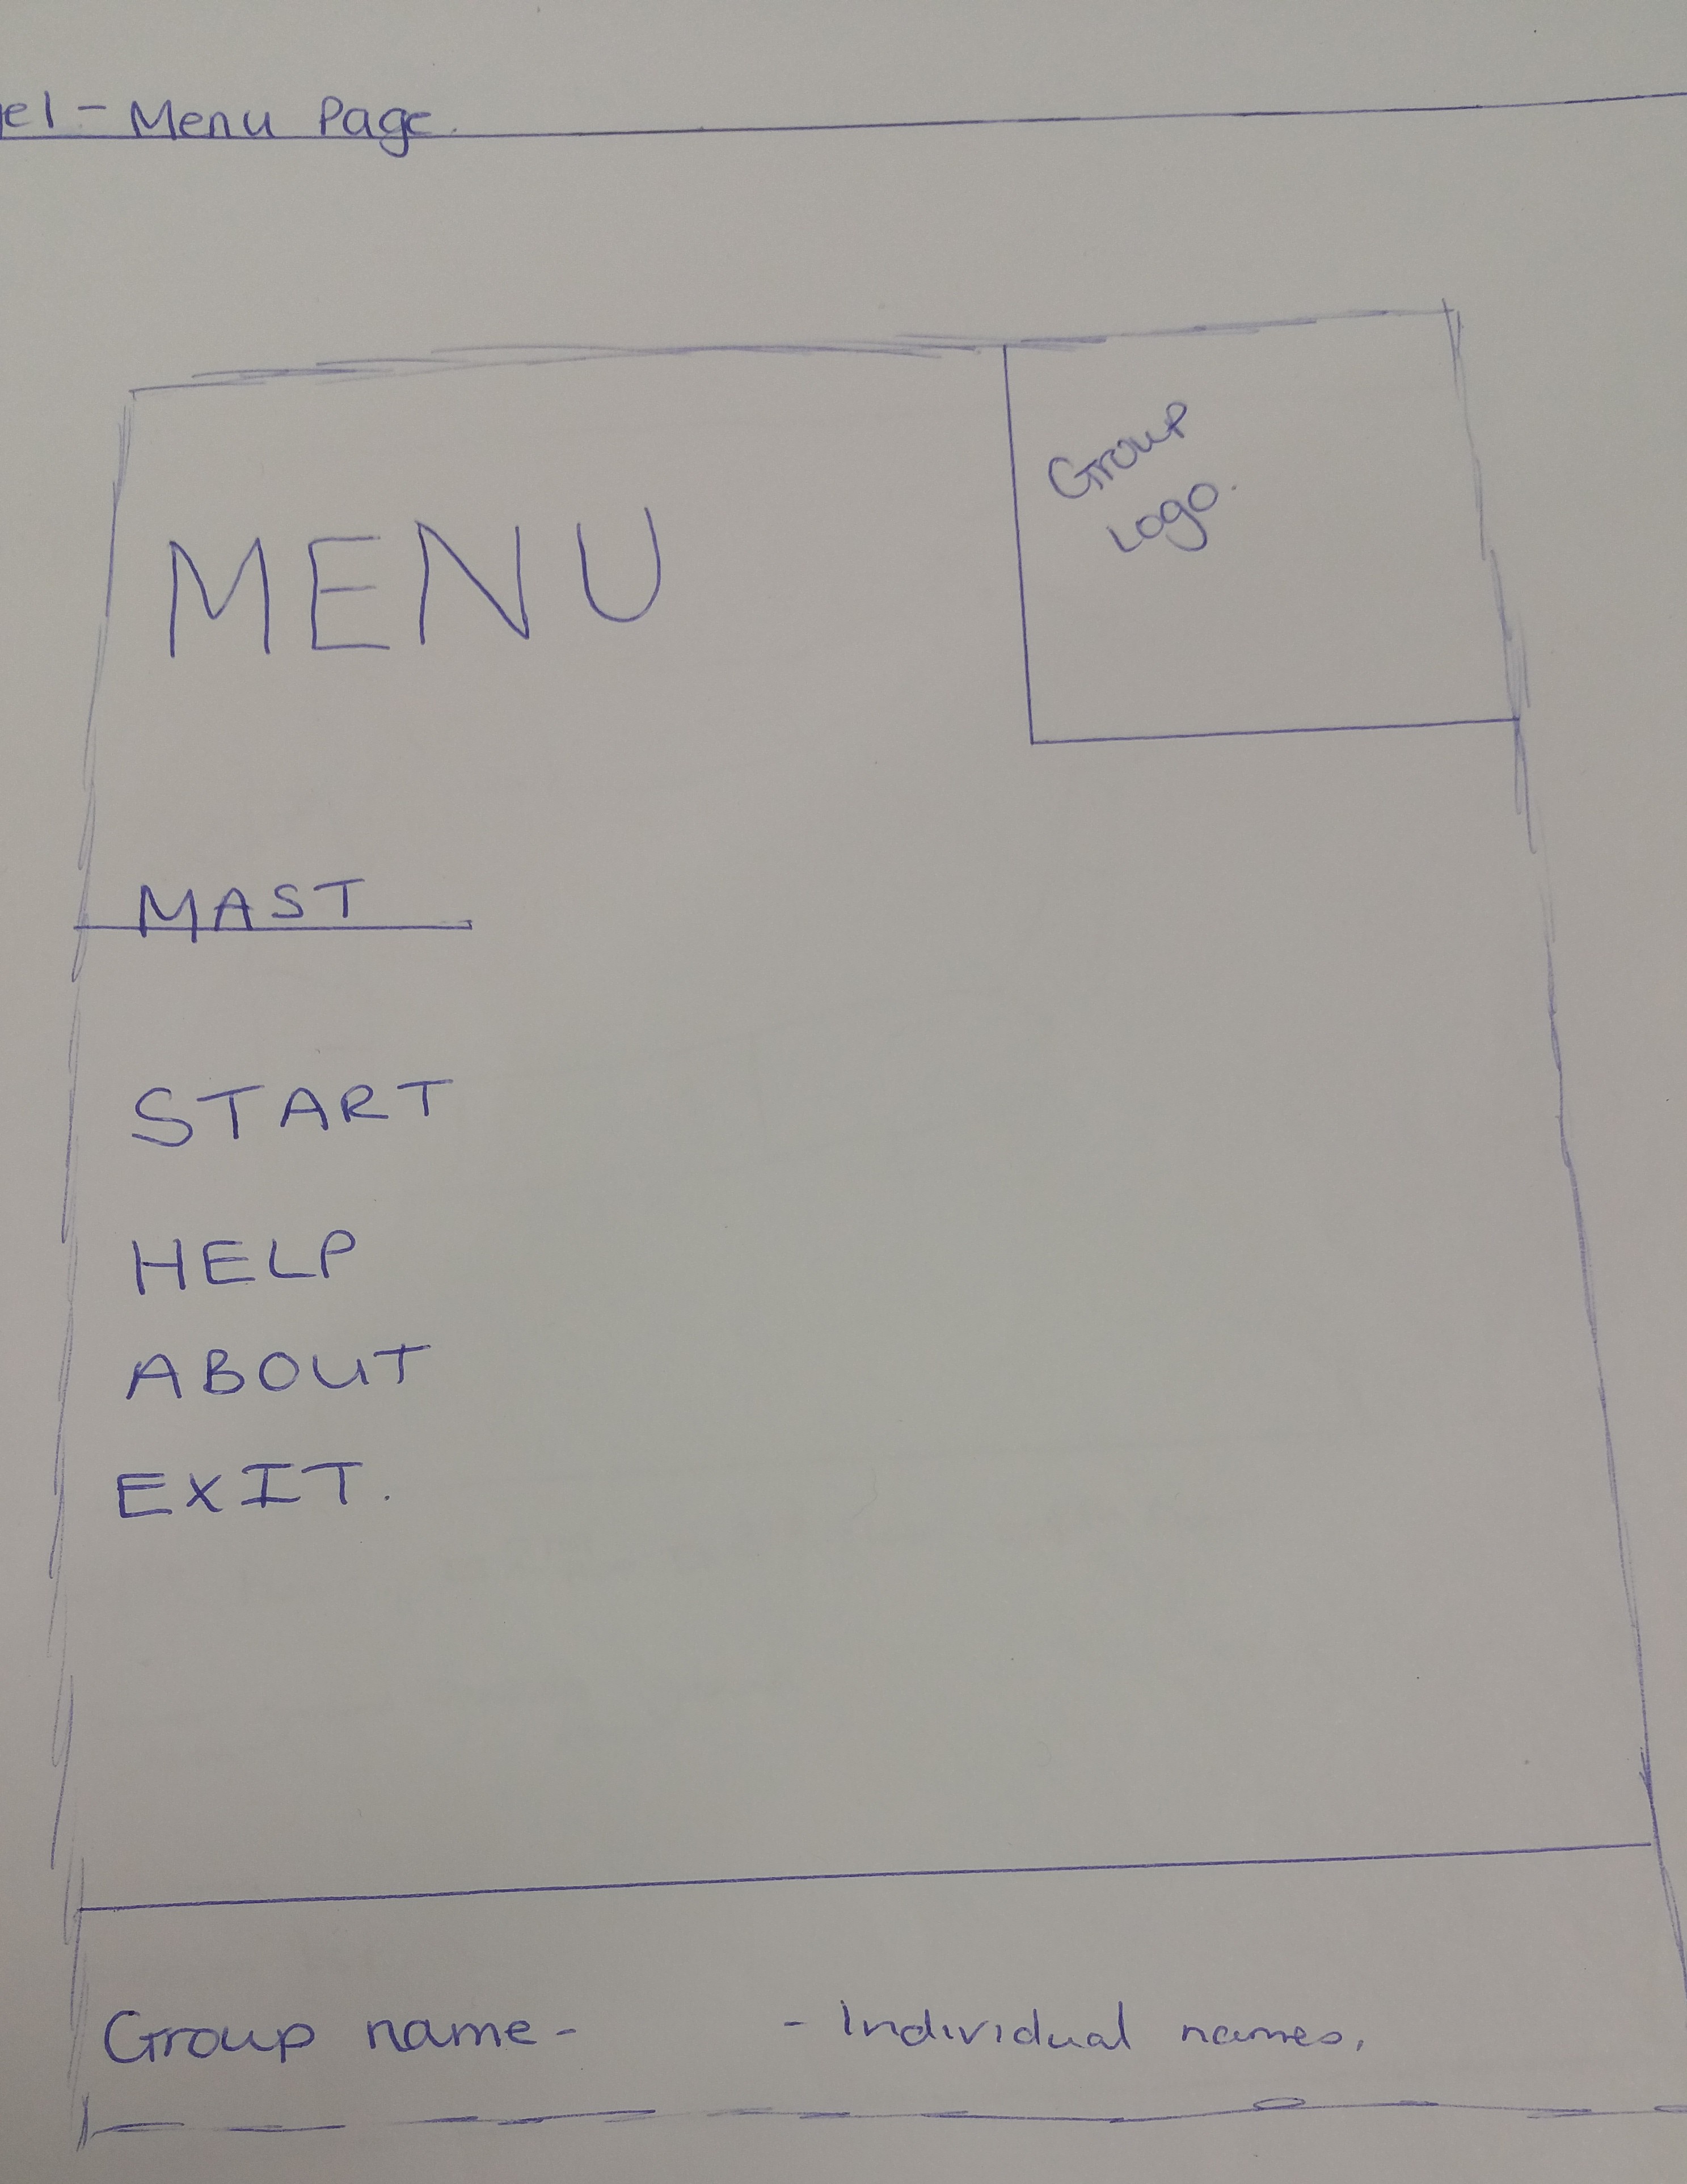 - Menu Page
MENU
Group
Logo.
MAST
START
HELP
ABOUT
EXIT.
Group name -
- Individual names,